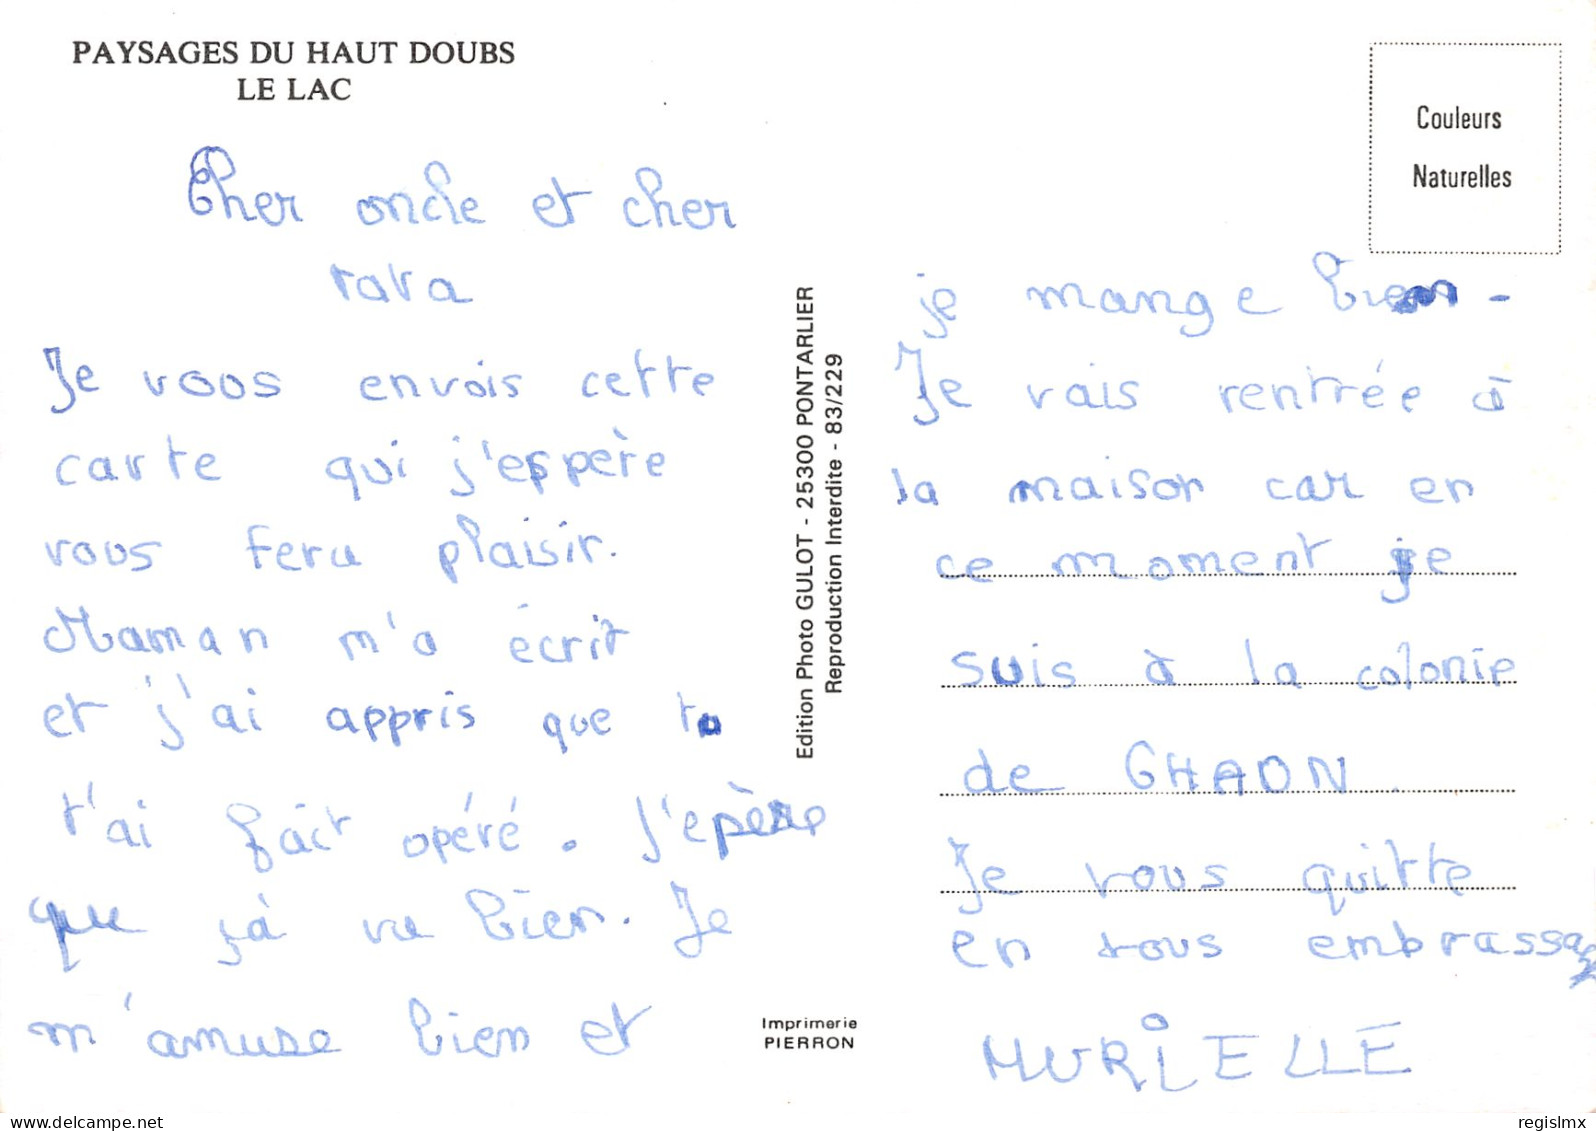 PAYSAGES DU HAUT DOUBS
LE LAC
Cher oncle et cher
tata
Je vous envois cette
carte qui j'espère
vous fera plaisir.
Maman m'a écrit
et j'ai appris que tu
t'ai fait opéré. J'epère
que çà va bien. Je
m'amuse bien et
Edition Photo GULOT - 25300 PONTARLIER
Reproduction Interdite - 83/229
Imprimerie
PIERRON
Couleurs
Naturelles
je mange bien -
Je vais rentrée à
la maison car en
ce moment je
suis à la colonie
de CHAON.
Je vous quitte
en vous embrassa
MURIELLE
www.delcampe.net
regislmx